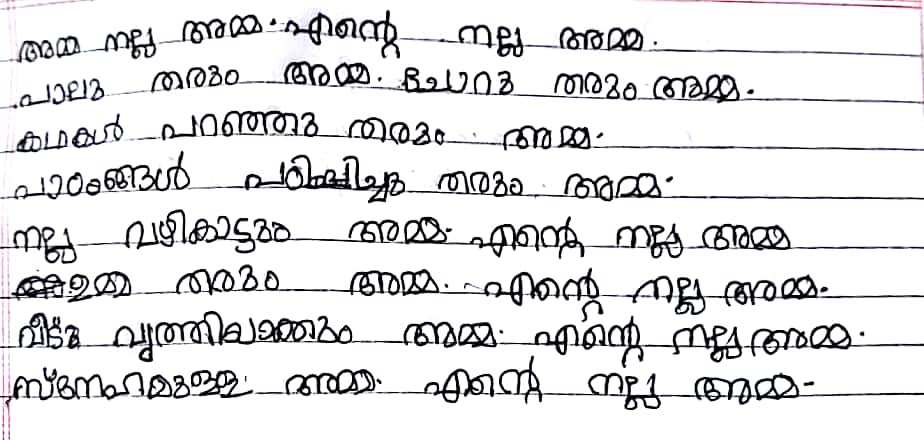 അമ്മ നല്ല അമ്മ. എന്റെ നല്ല അമ്മ.
പാലു തരും അമ്മ. ചോറു തരും അമ്മ.
കഥകൾ പറഞ്ഞു തരും അമ്മ.
പാഠംങ്ങൾ പഠിപ്പിച്ചു തരും അമ്മ.
നല്ല വഴികാട്ടും അമ്മ. എന്റെ നല്ല അമ്മ
ഉമ്മ തരും അമ്മ. എന്റെ നല്ല അമ്മ.
വീടു വൃത്തിയാക്കും അമ്മ. എന്റെ നല്ല അമ്മ.
സ്നേഹമുള്ള അമ്മ. എന്റെ നല്ല അമ്മ.